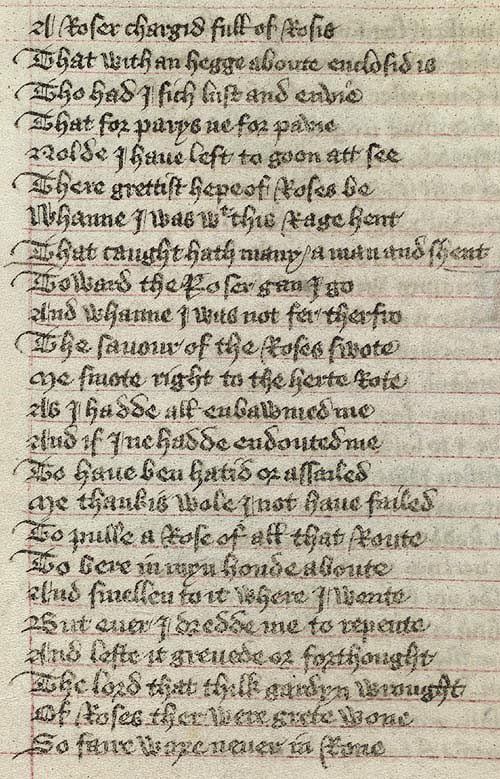 A Roser chargid full of Rosis
That with an hegge aboute enclosid is
Tho had I sich lust and envie
That for parys ne for pavie
Nolde I have left to goon att see
There grettist hepe of Roses be
Whanne I was wt this Rage hent
That caught hath many a man and shent
Toward the Roser gan I go
And whanne I was not fer therfro
The savour of the Roses swote
Me smote right to the herte Rote
As I hadde all enbawmed me
And if I ne hadde endouted me
To have ben hatid or assailed
Me thankis wole I not have failed
To pulle a Rose of all that Route
To bere in myn honde aboute
And smellen to it where I wente
But ever I dredde me to repente
And leste it grevede or forthought
The lord that thilk gardyn wrought
Of Roses ther were grete wone
So faire waxe never in Rone